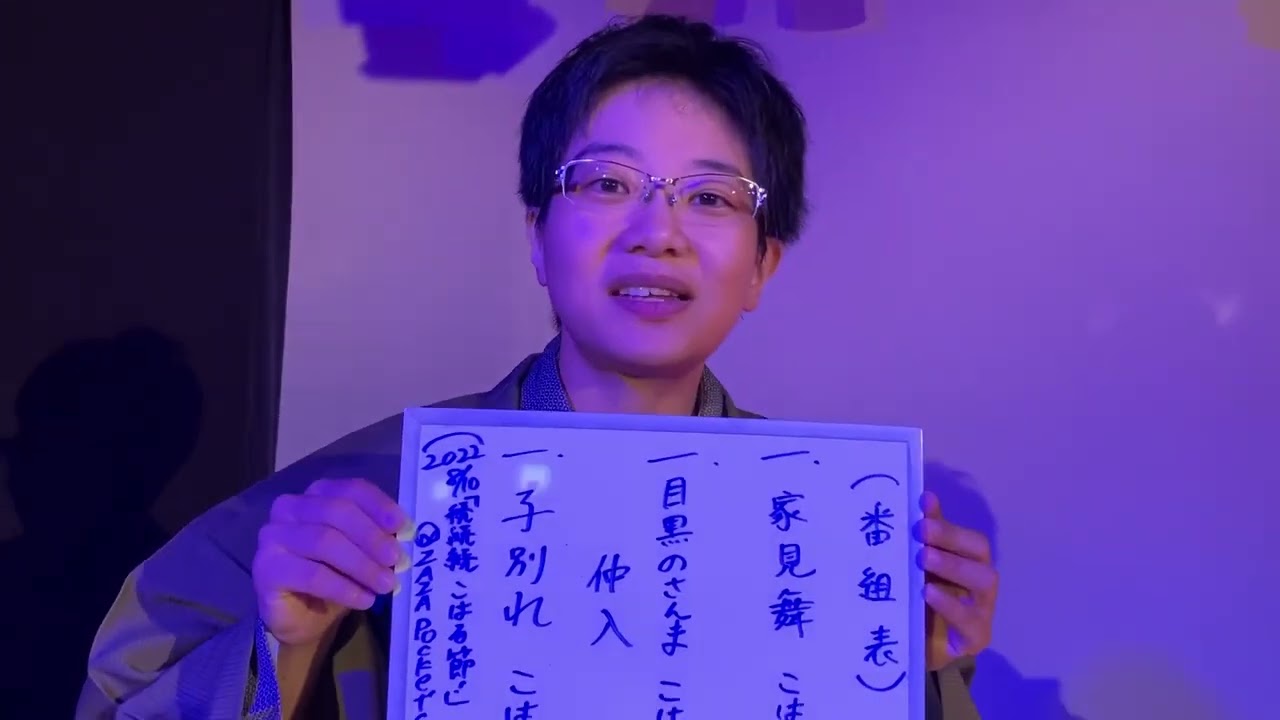 (番組表)
一. 家見舞 こは
一. 目黒のさんま こは
仲入
一. 子別れ こは
(2022 8/10「続続続 こはる節!」
@ZAZA POCKET'S